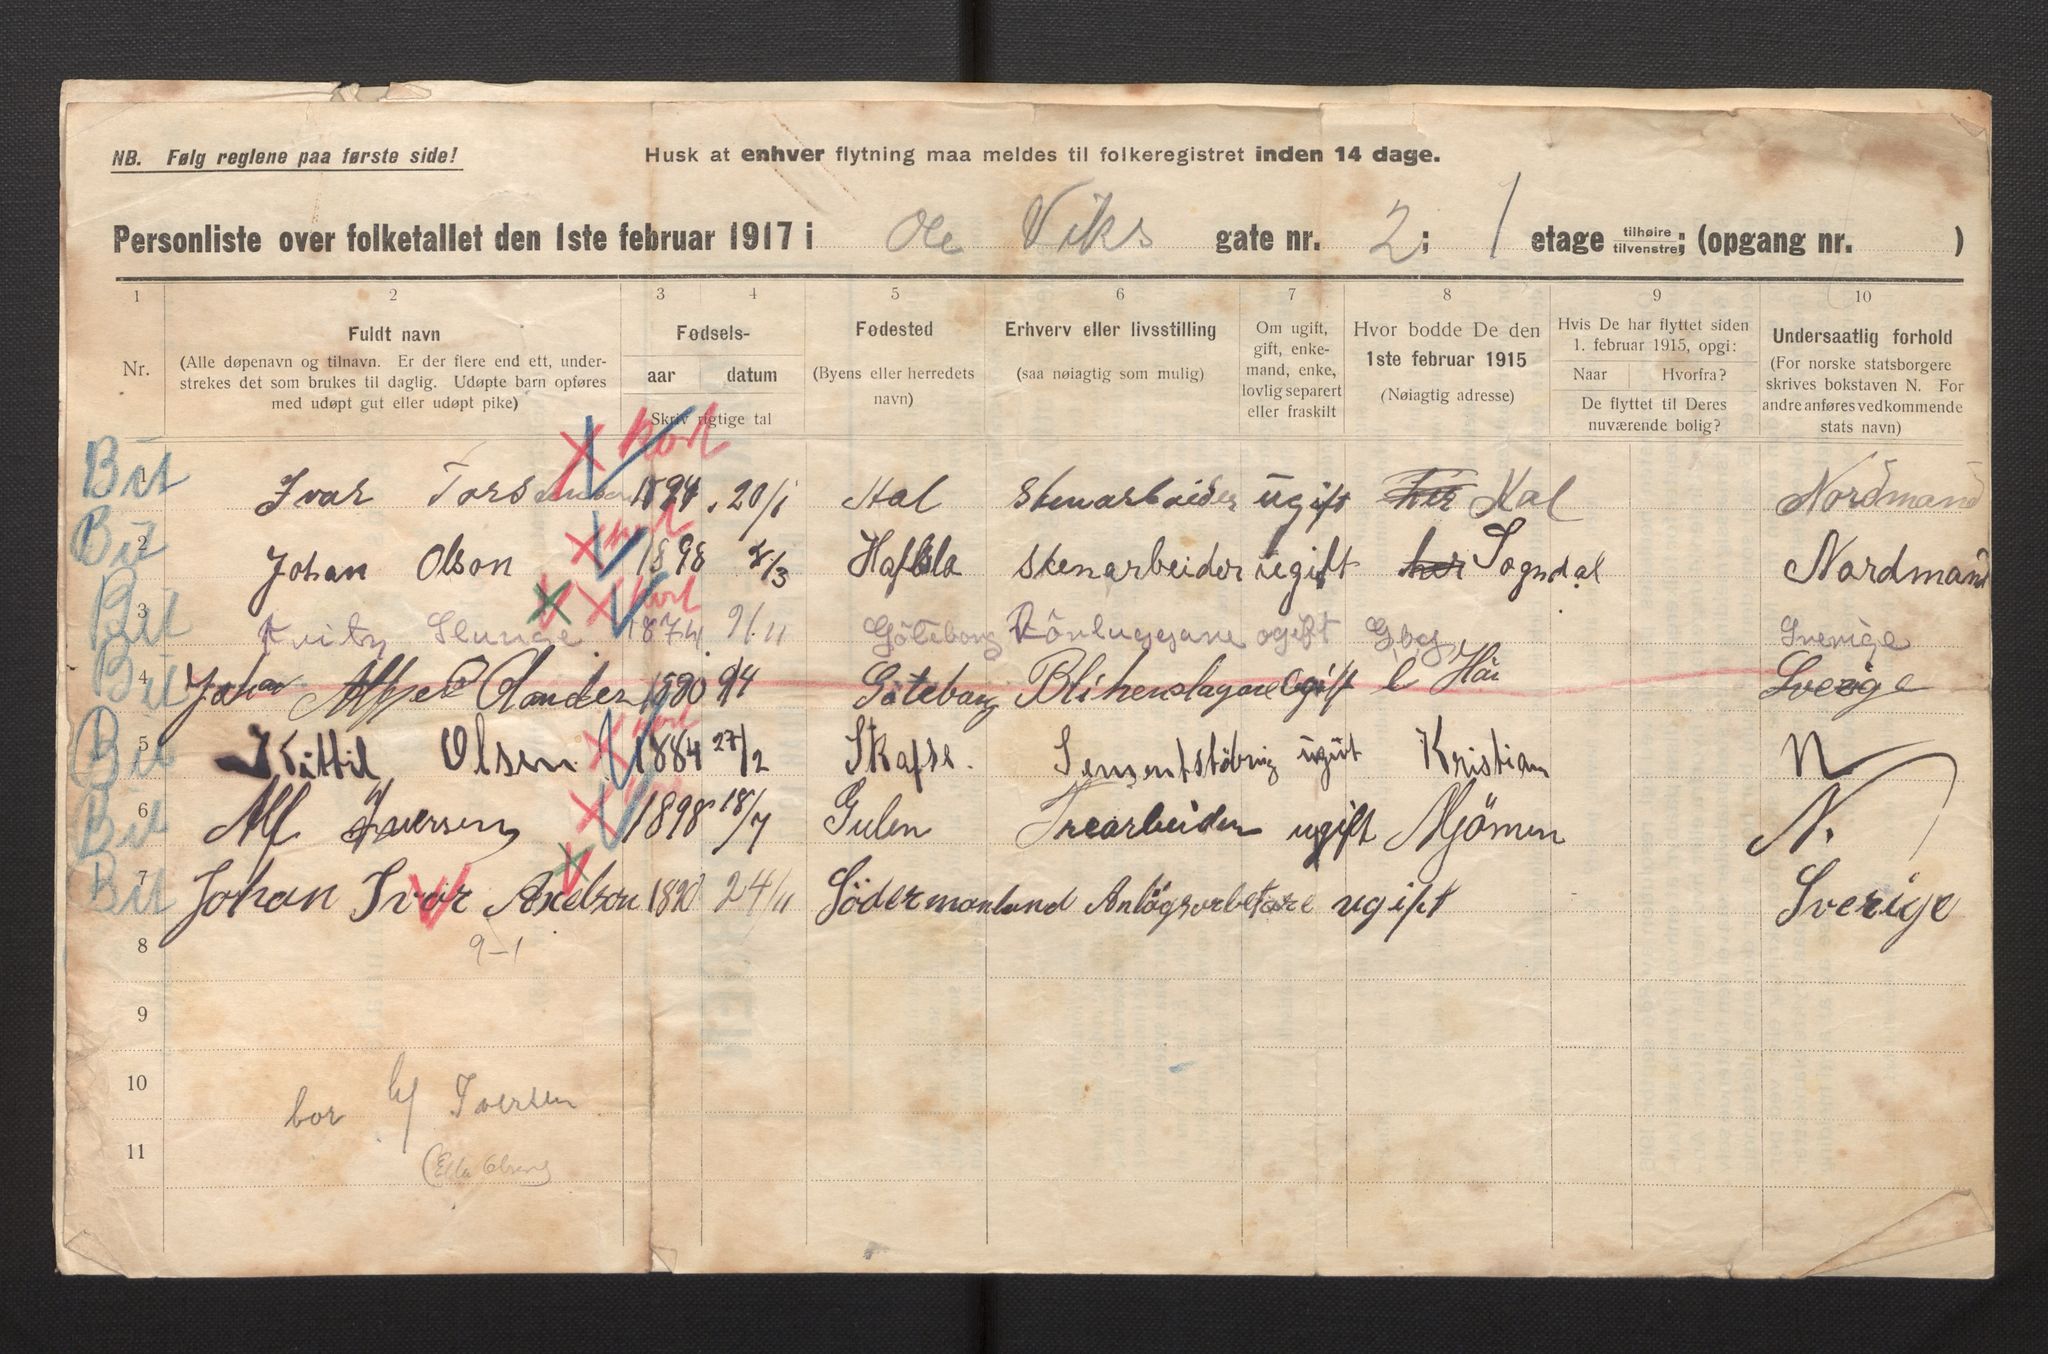 NB. Følg reglene paa første side! Husk at enhver flytning maa meldes til folkeregistret inden 14 dage.
Personliste over folketallet den 1ste februar 1917 i Ole Viks gate nr. 2; 1 etage tilhøire tilvenstre; (opgang nr. )
1 2 3 4 5 6 7 8 9 10
Nr.
Fuldt navn
(Alle døpenavn og tilnavn. Er der flere end ett, under-
strekes det som brukes til daglig. Udøpte barn opføres
med udøpt gut eller udøpt pike)
Fodsels-
aar datum
Skriv rigtige tal
Fodested
(Byens eller herredets
navn)
Erhverv eller livsstilling
(saa nøiagtig som mulig)
Om ugift,
gift, enke-
mand, enke,
lovlig separert
eller fraskilt
Hvor bodde De den
1ste februar 1915
(Nøiagtig adresse)
Hvis De har flyttet siden
1. februar 1915, opgi:
Naar Hvorfra?
De flyttet til Deres
nuværende bolig?
Undersaatlig forhold
(For norske statsborgere
skrives bokstaven N. For
andre anføres vedkommende
stats navn)
kort
Bit 1 Ivar 1894 20/1 Stenarbeider ugift her Nordmand
Bit 2 Johan Olson kort 1898 /3 Hafslo Stenarbeider ugift her Sogndal Nordmand
Bit 3 kort 1874 9/11 Göteborg ogift Gbg Sverige
Bit 4 Johan 1890 9/4 Göteborg ogift Sverige
Bit 5 Kittil Olsen kort 1884 27/2 ugivt Kristian N
Bit 6 Alf Iversen 1898 18/7 Gulen Trearbeider ugift N.
Bit 7 Johan Ivar Axelson 1890 24/11 Södermanland Anlägsarbetare ugift Sverige
8 9-1
9
10
bor h/ Iversen
11